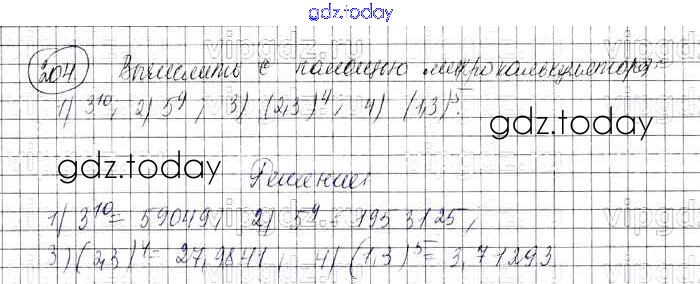 gdz.today
204. Вычислить с помощью микрокалькулятора:
1) 3¹⁰; 2) 5⁹; 3) (2,3)⁴; 4) (1,3)⁵.
gdz.today
gdz.today
Решение:
1) 3¹⁰ = 59049; 2) 5⁹ = 1953125;
3) (2,3)⁴ = 27,9841; 4) (1,3)⁵ = 3,71293